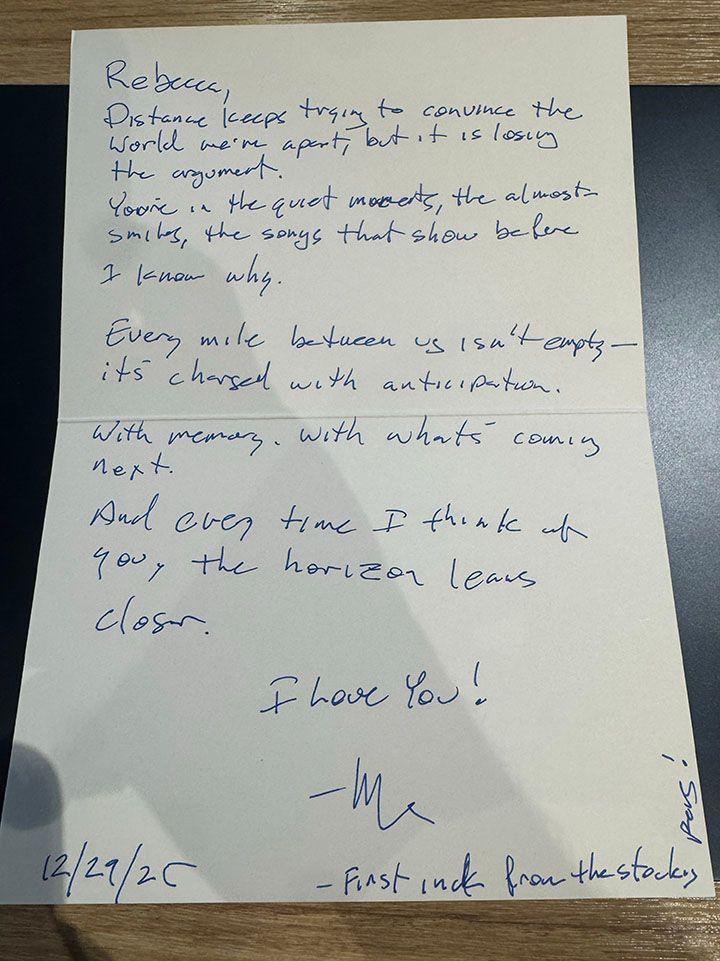 Rebecca,
Distance keeps trying to convince the
world we're apart, but it is losing
the argument.
You're in the quiet moments, the almost-
smiles, the songs that show before
I know why.
Every mile between us isn't empty—
it's charged with anticipation.
With memory. With what's coming
next.
And every time I think of
you, the horizon leans
closer.
I Love You!
12/29/25
- First ink from the stocking
pens!